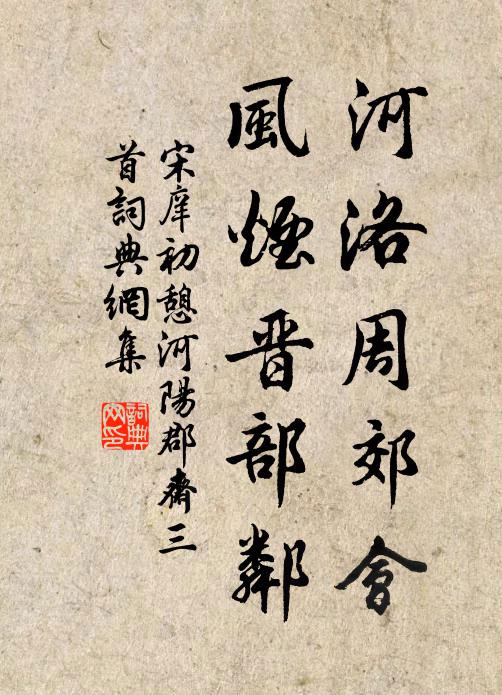 河洛周郊會
風煙晋部鄰
宋庠初憩河陽郡齋三
首詞典網集
詞典
网印